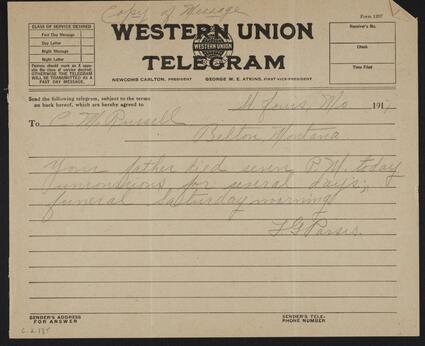 Copy of Message
Form 1207
CLASS OF SERVICE DESIRED
Fast Day Message
Day Letter
Night Message
Night Letter
Patrons should mark an X opposite the class of service desired; OTHERWISE THE TELEGRAM WILL BE TRANSMITTED AS A FAST DAY MESSAGE.
WESTERN UNION
WESTERN UNION
TELEGRAM
NEWCOMB CARLTON, PRESIDENT
GEORGE W. E. ATKINS, FIRST VICE-PRESIDENT
Receiver's No.
Check
Time Filed
Send the following telegram, subject to the terms
on back hereof, which are hereby agreed to
St Louis, Mo 191
To C M Russell
Belton, Montana
Your father died seven P.M. today
unconscious for several days,
funeral Saturday morning
SENDER'S ADDRESS
FOR ANSWER
SENDER'S TELE-
PHONE NUMBER